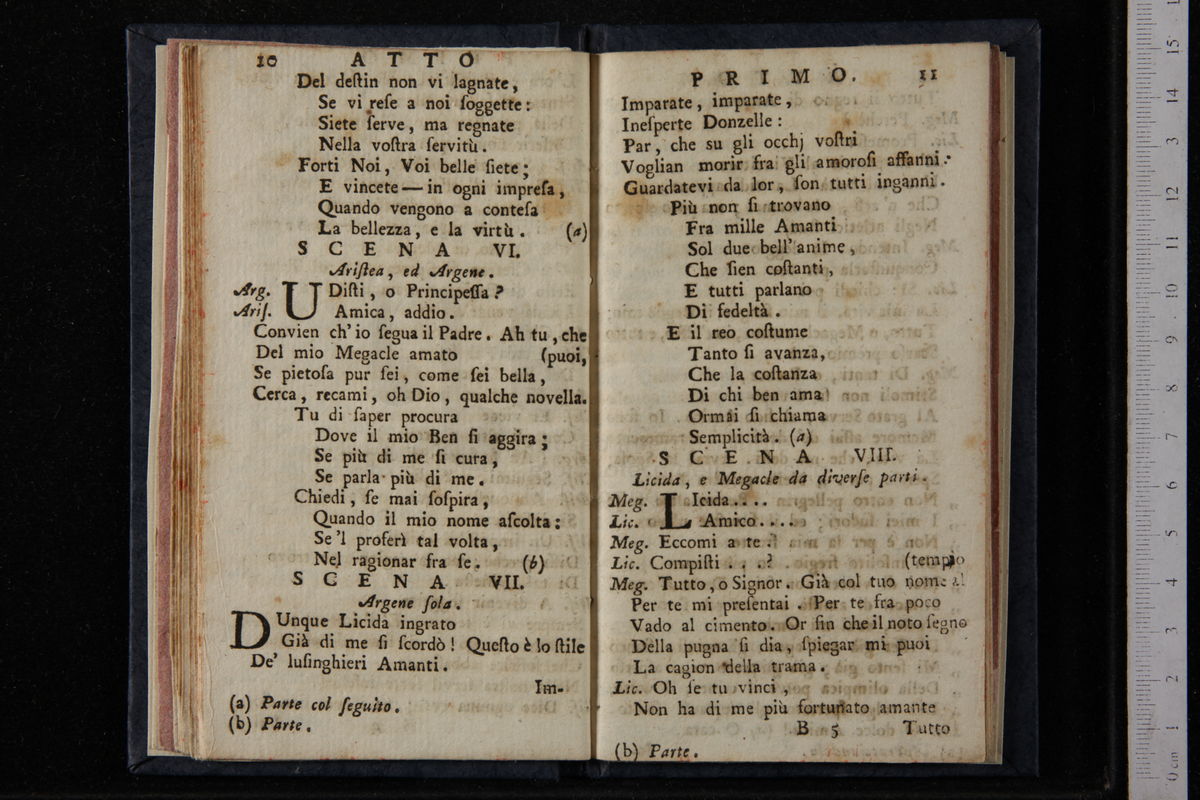 10 ATTO
Del deſtin non vi lagnate,
Se vi reſe a noi ſoggette:
Siete ſerve, ma regnate
Nella voſtra ſervitù.
Forti Noi, Voi belle ſiete;
E vincete — in ogni impreſa,
Quando vengono a conteſa
La bellezza, e la virtù. (a)
SCENA VI.
Ariſtea, ed Argene.
Arg. UDiſti, o Principeſſa?
Ariſ. Amica, addio.
Convien ch'io ſegua il Padre. Ah tu, che
Del mio Megacle amato (puoi,
Se pietoſa pur ſei, come ſei bella,
Cerca, recami, oh Dio, qualche novella.
Tu di ſaper procura
Dove il mio Ben ſi aggira;
Se più di me ſi cura,
Se parla più di me.
Chiedi, ſe mai ſoſpira,
Quando il mio nome aſcolta:
Se 'l proferì tal volta,
Nel ragionar fra ſe. (b)
SCENA VII.
Argene ſola.
DUnque Licida ingrato
Già di me ſi ſcordò! Queſto è lo ſtile
De' luſinghieri Amanti.
Im-
(a) Parte col ſeguito.
(b) Parte.
PRIMO. 11
Imparate, imparate,
Ineſperte Donzelle:
Par, che su gli occhj voſtri
Voglian morir fra gli amoroſi affanni:
Guardatevi da lor, ſon tutti inganni.
Più non ſi trovano
Fra mille Amanti
Sol due bell'anime,
Che ſien coſtanti,
E tutti parlano
Di fedeltà.
E il reo coſtume
Tanto ſi avanza,
Che la coſtanza
Di chi ben ama
Ormai ſi chiama
Semplicità. (a)
SCENA VIII.
Licida, e Megacle da diverſe parti.
Meg. LIcida....
Lic. Amico....
Meg. Eccomi a te.
Lic. Compiſti . . .? (tempio
Meg. Tutto, o Signor. Già col tuo nome al
Per te mi preſentai. Per te fra poco
Vado al cimento. Or fin che il noto ſegno
Della pugna ſi dia, ſpiegar mi puoi
La cagion della trama.
Lic. Oh ſe tu vinci,
Non ha di me più fortunato amante
B 5 Tutto
(b) Parte.
0 cm 1 2 3 4 5 6 7 8 9 10 11 12 3 14 15